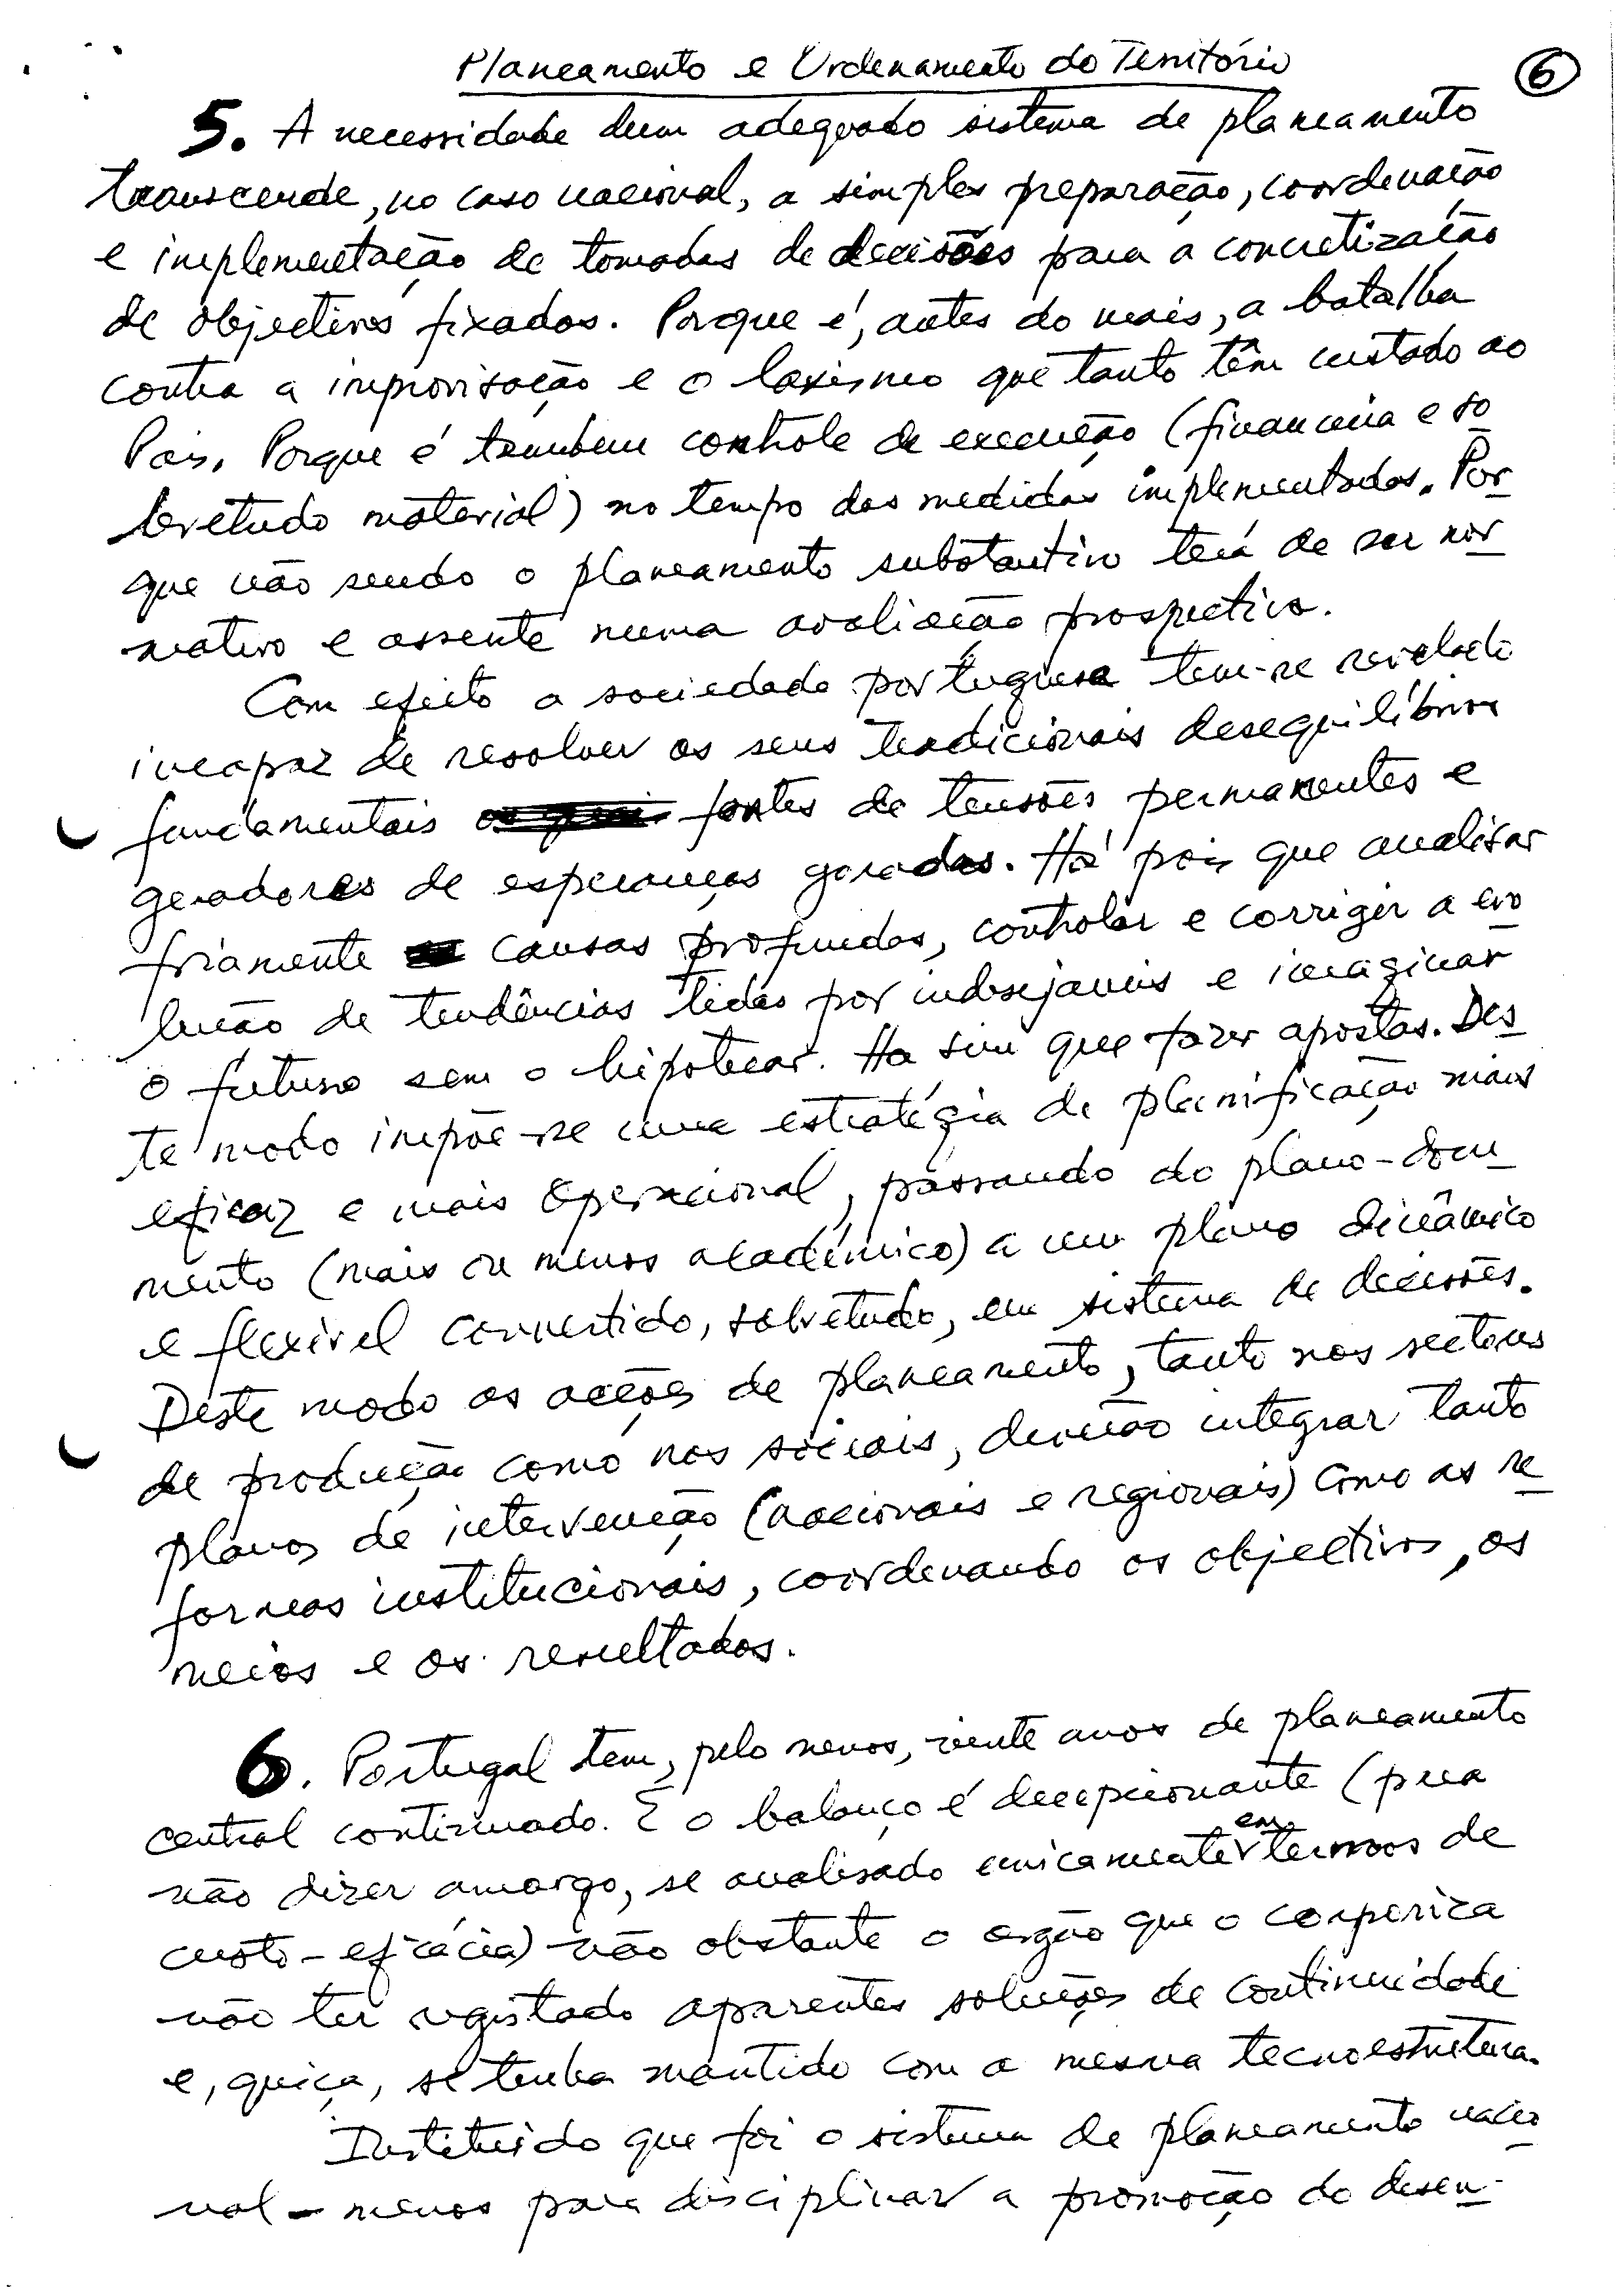 Planeamento e Ordenamento do Território
6
5. A necessidade dum adequado sistema de planeamento
transcende, no caso nacional, a simples preparação, coordenação
e implementação de tomadas de decisões para a concretização
de objectivos fixados. Porque é, antes do mais, a batalha
contra a improvisação e o laxismo que tanto têm custado ao
País. Porque é também controle de execução (financeira e so
bretudo material) no tempo das medidas implementadas. Por
que não sendo o planeamento substantivo terá de ser nor
mativo e assente numa avaliação prospectiva.
Com efeito a sociedade portuguesa tem-se revelado
incapaz de resolver os seus tradicionais desequilíbrios
fundamentais fontes de tensões permanentes e
geradores de esperanças goradas. Há pois que analisar
friamente causas profundas, controlar e corrigir a evo
lução de tendências tidas por indesejaveis e imaginar
o futuro sem o hipotecar. Ha sim que fazer apostas. Des
te modo impõe-se uma estratégia de planificação mais
eficaz e mais operacional, passando do plano-docu
mento (mais ou menos académico) a um plano dinâmico
e flexivel convertido, sobretudo, em sistema de decisões.
Deste modo as acções de planeamento, tanto nos sectores
de produção como nos sociais, deverão integrar tanto
planos de intervenção (nacionais e regionais) como as re
formas institucionais, coordenando os objectivos, os
meios e os resultados.
6. Portugal tem, pelo menos, vinte anos de planeamento
central continuado. E o balanço é decepcionante (para
não dizer amargo, se analisado unicamente em termos de
custo-eficácia) não obstante o orgão que o corporiza
não ter registado aparentes soluções de continuidade
e, quiça, se tenha mantido com a mesma tecnoestrutura.
Instituido que foi o sistema de planeamento nacio
nal - menos para disciplinar a promoção do desen-